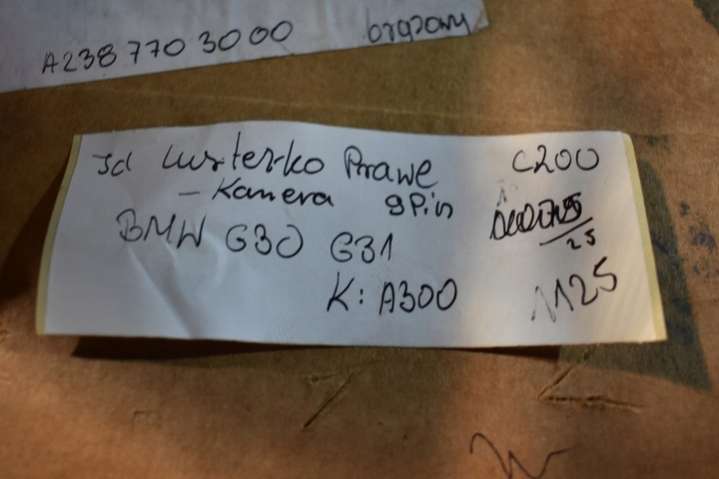 A238 770 3000 brązowy
Jd Lusterko Prawe C200
- Kamera 9Pin
25
BMW G30 G31
K: A300 1125